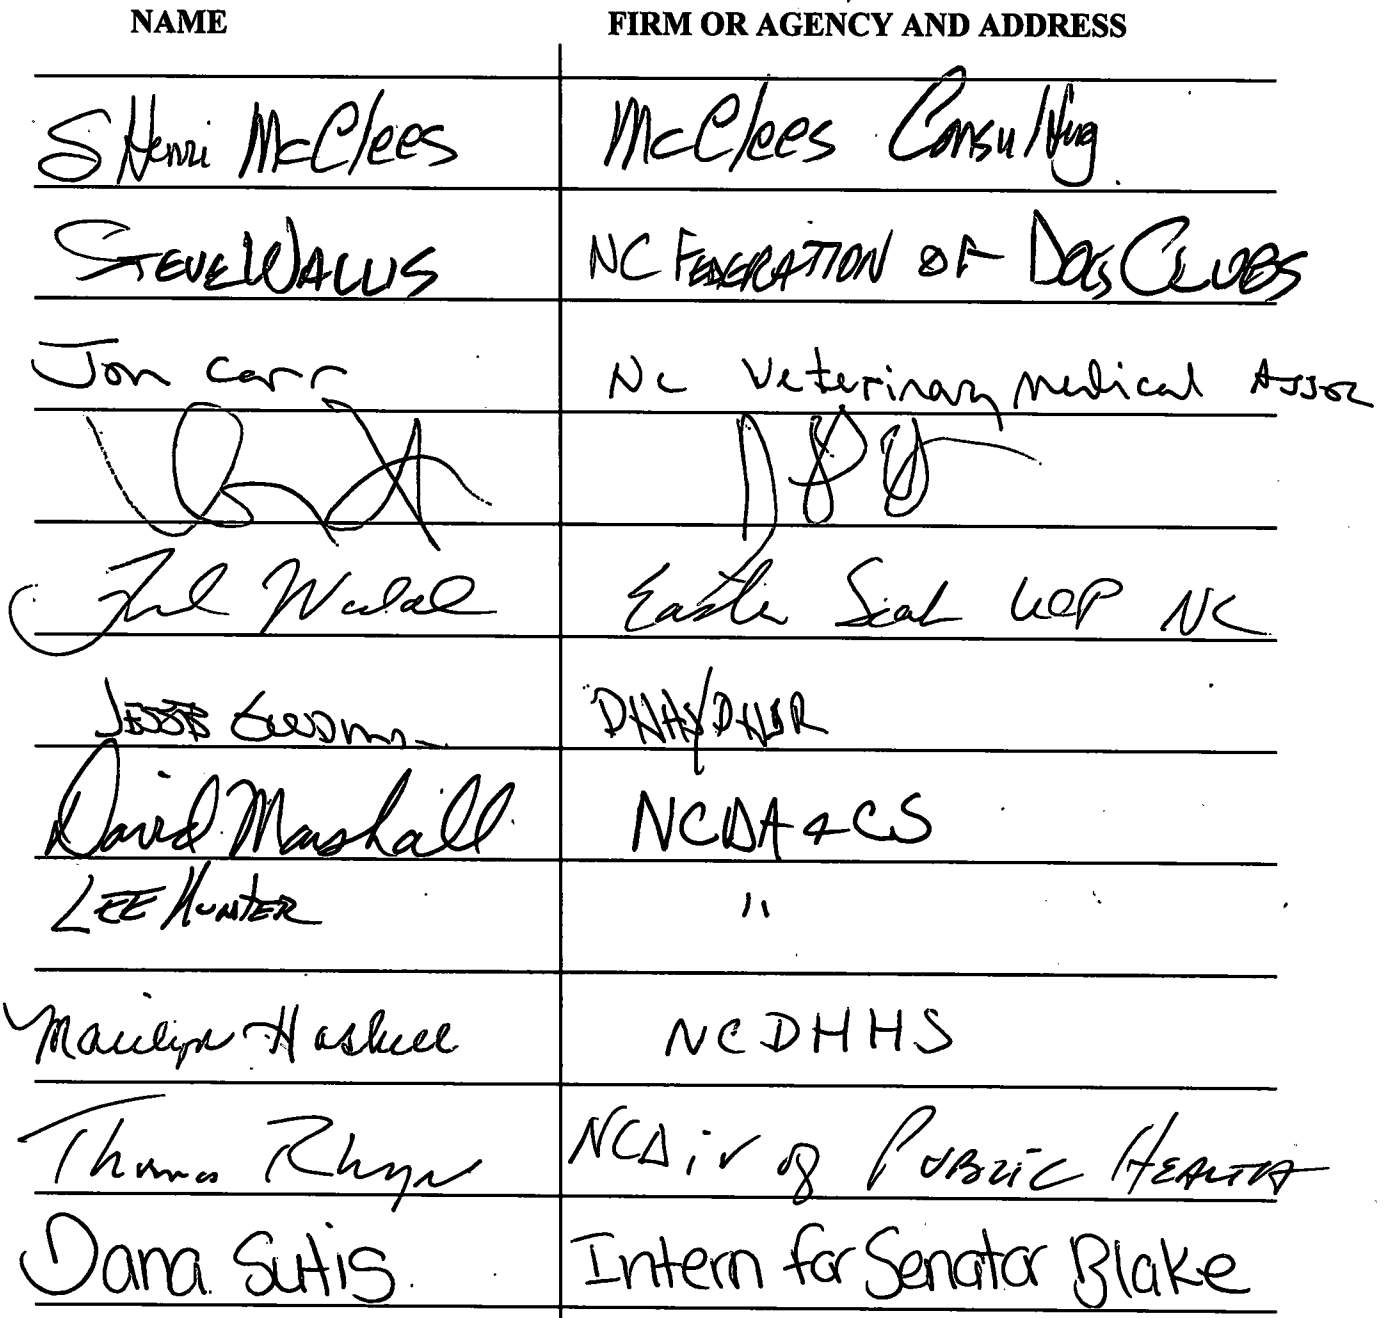 NAME FIRM OR AGENCY AND ADDRESS
SHenri McClees McClees Consulting
STEVE WALLIS NC FEDERATION OF DOG CLUBS
Jon Carr NC Veterinary Medical Assoc
Easter Seals UCP NC
JESSE GOODMAN DHHS/DHSR
David Marshall NCDA & CS
LEE HUNTER "
Marilyn Haskell NCDHHS
Thomas Rhyne NC Div of PUBLIC HEALTH
Dana Sutis Intern for Senator Blake